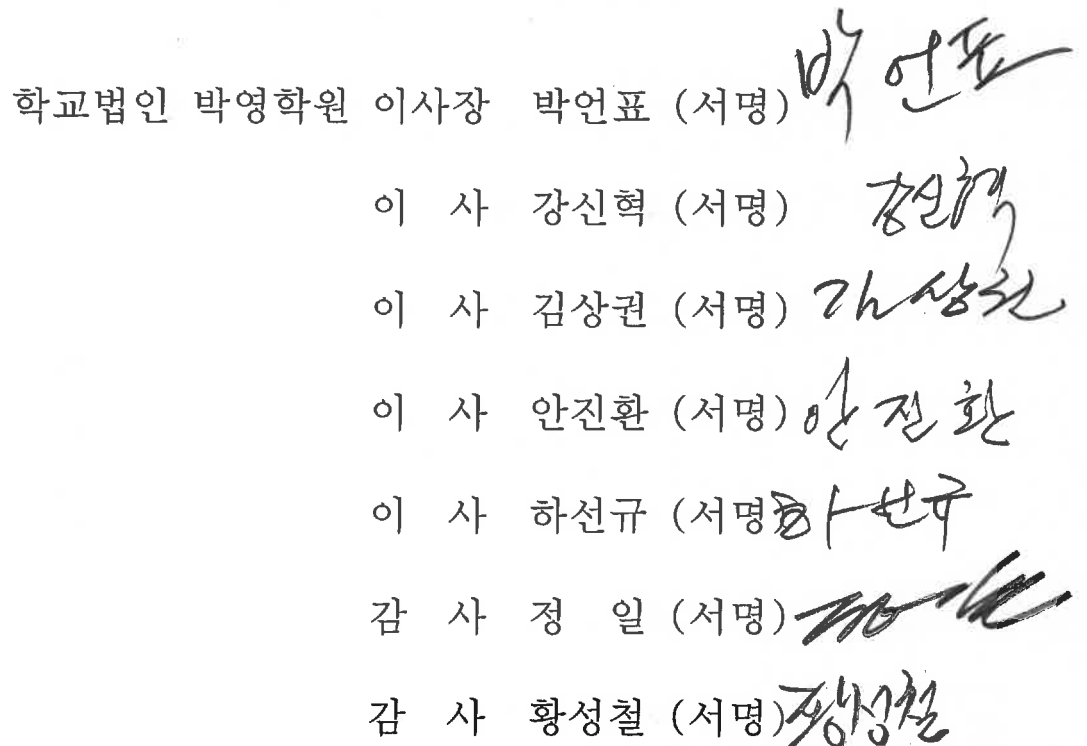 학교법인 박영학원 이사장 박언표 (서명) 박언표
이 사 강신혁 (서명) 강신혁
이 사 김상권 (서명) 김상권
이 사 안진환 (서명) 안진환
이 사 하선규 (서명) 하선규
감 사 정 일 (서명)
감 사 황성철 (서명) 황성철